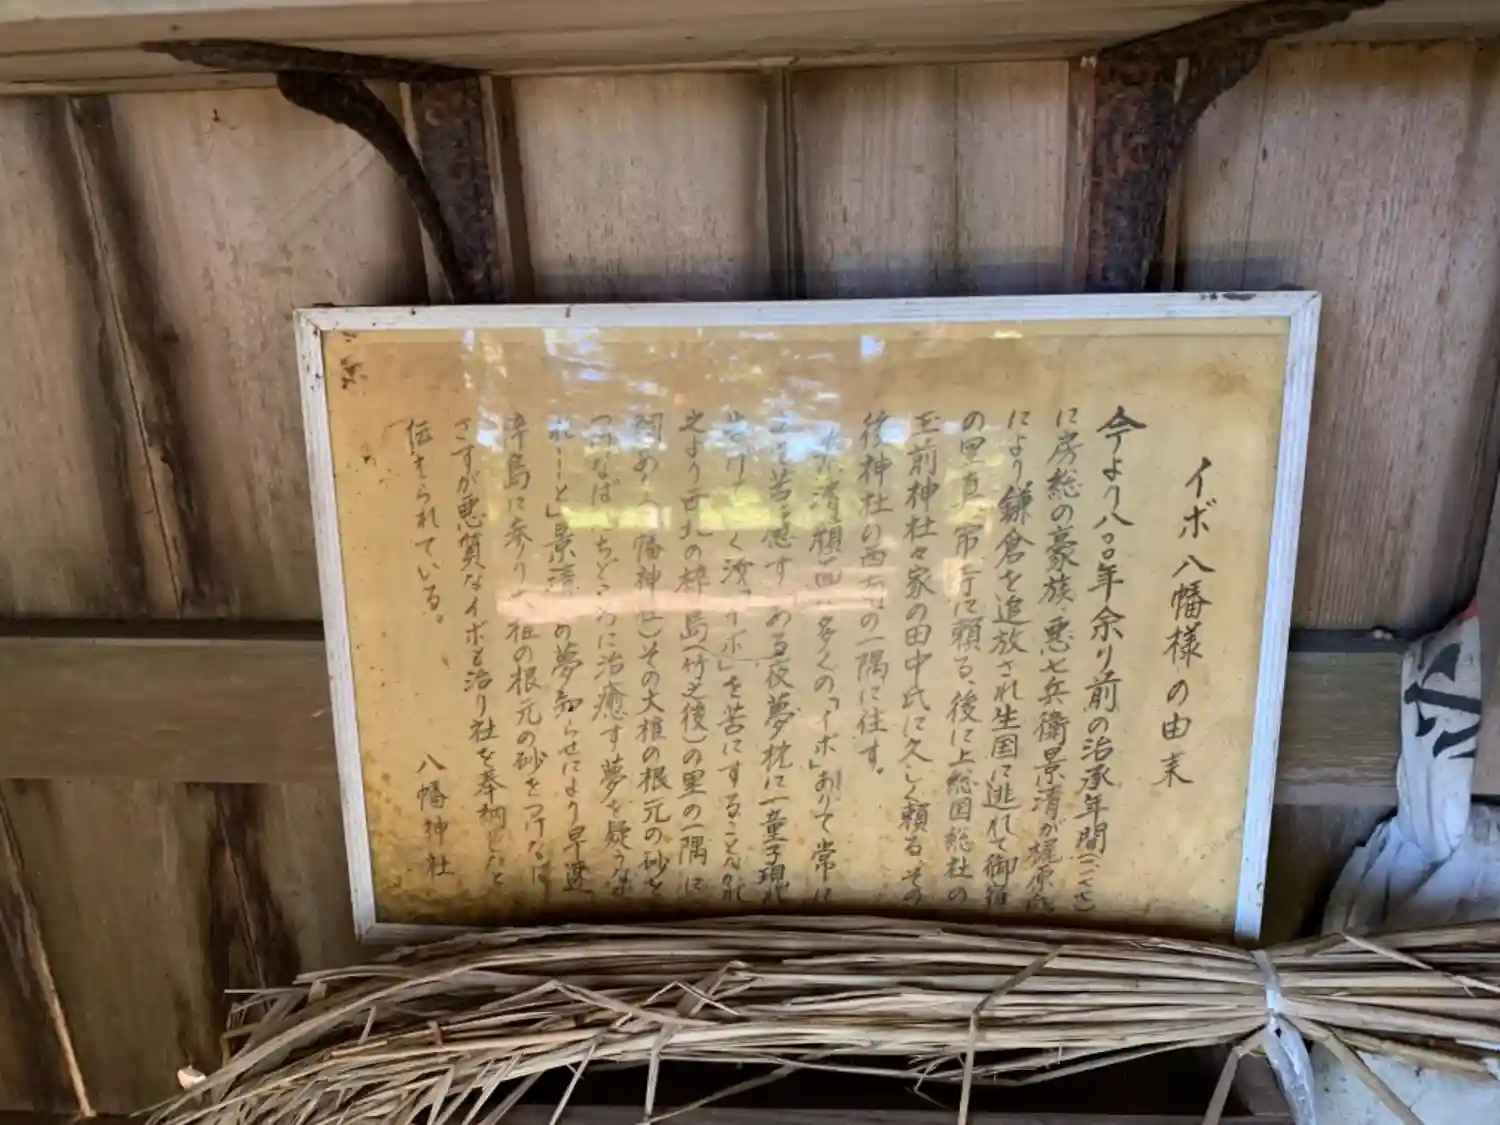 イボ八幡様の由来
今より八〇〇年余り前の治承年間(一一八〇
に房総の豪族・悪七兵衛景清が梶原氏
により鎌倉を追放され生国に逃れて御宿
の里 に頼る、後に上総国総社の
玉前神社々家の田中氏に久しく頼る、その
後神社の西 の一隅に住す。
清頼 多くの「イボ」ありて常に
苦 感ず ある夜夢枕に一童子現れ
く汝「イボ」を苦にすることなかれ
之より西北の梓島(竹之後)の里の一隅に
祠あり(八幡神社)その大椎の根元の砂を
つけなば ちどころに治癒す夢を疑うなか
れ――と」景清 の夢知らせにより早速
梓島に参り大椎の根元の砂をつけなば
さすが悪質なイボも治り社を奉納したと
伝えられている。
八幡神社